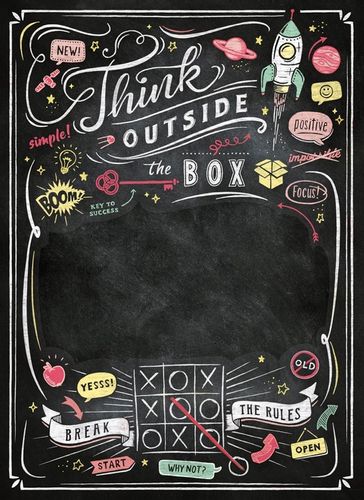 NEW!
Think
OUTSIDE
the BOX
simple!
positive
impossible
BOOM!
KEY TO
SUCCESS
FOCUS!
YESSS!
OLD
XOX
XOO
XOX
BREAK
THE RULES
START
WHY NOT?
OPEN